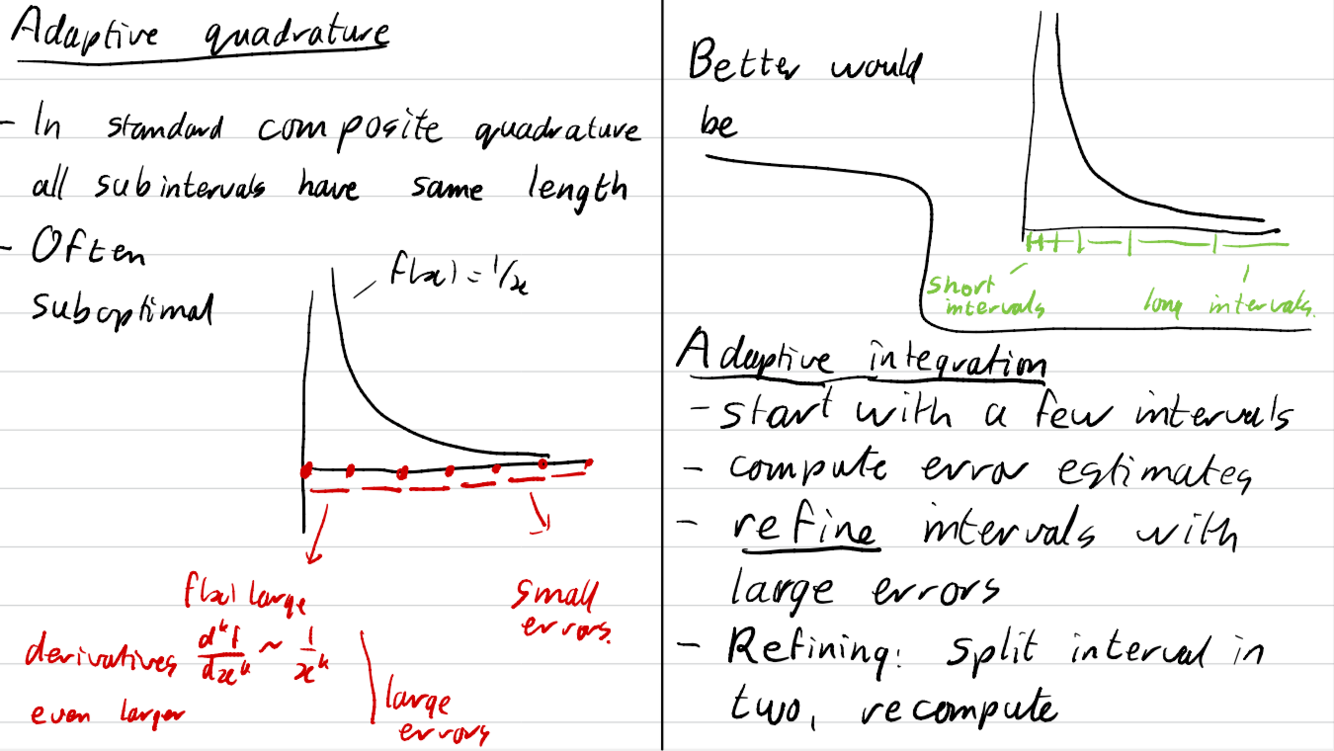 Adaptive quadrature
- In standard composite quadrature
all subintervals have same length
- Often
suboptimal
f(x) = 1/x
f(x) large
derivatives d^k f / dx^k ~ 1 / x^k
even larger
large
errors
small
errors.
Better would
be
short
intervals
long intervals.
Adaptive integration
- start with a few intervals
- compute error estimates
- refine intervals with
large errors
- Refining: split interval in
two, recompute